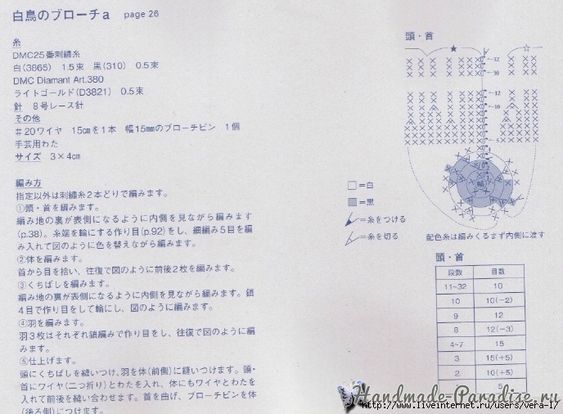 白鳥のブローチa page 26
糸
DMC25番刺繍糸
白(3865) 1.5束 黒(310) 0.5束
DMC Diamant Art.380
ライトゴールド(D3821) 0.5束
針 8号レース針
その他
＃20ワイヤ 15㎝を1本 幅15㎜のブローチピン 1個
手芸用わた
サイズ 3×4㎝
編み方
指定以外は刺繍糸2本どりで編みます。
①頭・首を編みます。
編み地の裏が表側になるように内側を見ながら編みます
(p.38)。糸端を輪にする作り目(p.92)をし、細編み5目を編
み入れて図のように色を替えながら編みます。
②体を編みます。
首から目を拾い、往復で図のように前後2枚を編みます。
③くちばしを編みます。
編み地の裏が表側になるように内側を見ながら編みます。鎖
4目で作り目をして輪にし、図のように編みます。
④羽を編みます。
羽3枚はそれぞれ鎖編みで作り目をし、往復で図のように編
みます。
⑤仕上げます。
頭にくちばしを縫いつけ、羽を体(前側)に縫いつけます。頭・
首にワイヤ(二つ折り)とわたを入れ、体にもワイヤとわたを
入れて前後を縫い合わせます。首を曲げ、ブローチピンを体
(後ろ側)につけます。
頭・首
12
10
12
10
輪
□=白
■=黒
=糸をつける
=糸を切る
配色糸は編みくるまず内側に渡す
頭・首
段数 目数
11~32 10
10 10(−2)
9 12
8 12(−3)
4~7 15
3 15(+5)
2 10(+5)
5
Handmade-Paradise.ru
>http://www.liveinternet.ru/users/vera-l/